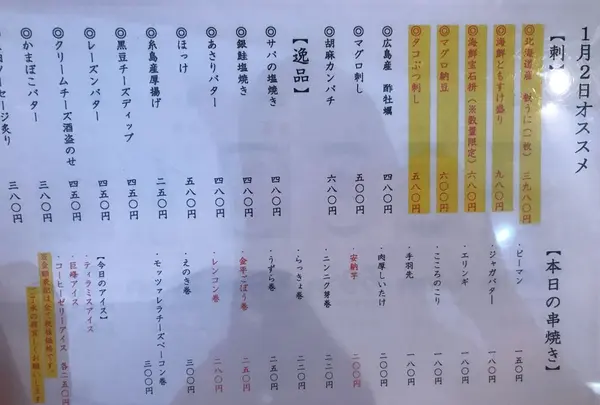 1月2日オススメ
【刺】
◎北海道産 殻うに(一枚) 三九八〇円
◎海鮮ともすけ盛り 九八〇円
◎海鮮宝石桝(※数量限定) 六八〇円
◎マグロ納豆 六〇〇円
◎タコぶつ刺し 五八〇円
◎広島産 酢牡蠣 四八〇円
◎マグロ刺し 五〇〇円
◎胡麻カンパチ 六八〇円
【逸品】
◎サバの塩焼き 四八〇円
◎銀鮭塩焼き 四八〇円
◎あさりバター 四八〇円
◎ほっけ 五八〇円
◎糸島産厚揚げ 二五〇円
◎黒豆チーズディップ 四五〇円
◎レーズンバター 四五〇円
◎クリームチーズ酒盗のせ 四五〇円
◎かまぼこバター 三八〇円
ーセージ炙り 三八〇円
【本日の串焼き】
・ピーマン 一五〇円
・ジャガバター 一八〇円
・エリンギ 一八〇円
・こころのこり 一八〇円
・手羽先 一八〇円
・肉厚しいたけ 二〇〇円
・安納芋 二〇〇円
・ニンニク芽巻 二二〇円
・らっきょ巻 二二〇円
・うずら巻 二五〇円
・金平ごぼう巻 二五〇円
・レンコン巻 二八〇円
・えのき巻 三〇〇円
・モッツァレラチーズベーコン巻 三〇〇円
【今日のアイス】
・ティラミスアイス
・巨峰アイス
・コーヒーゼリーアイス 各二五〇円